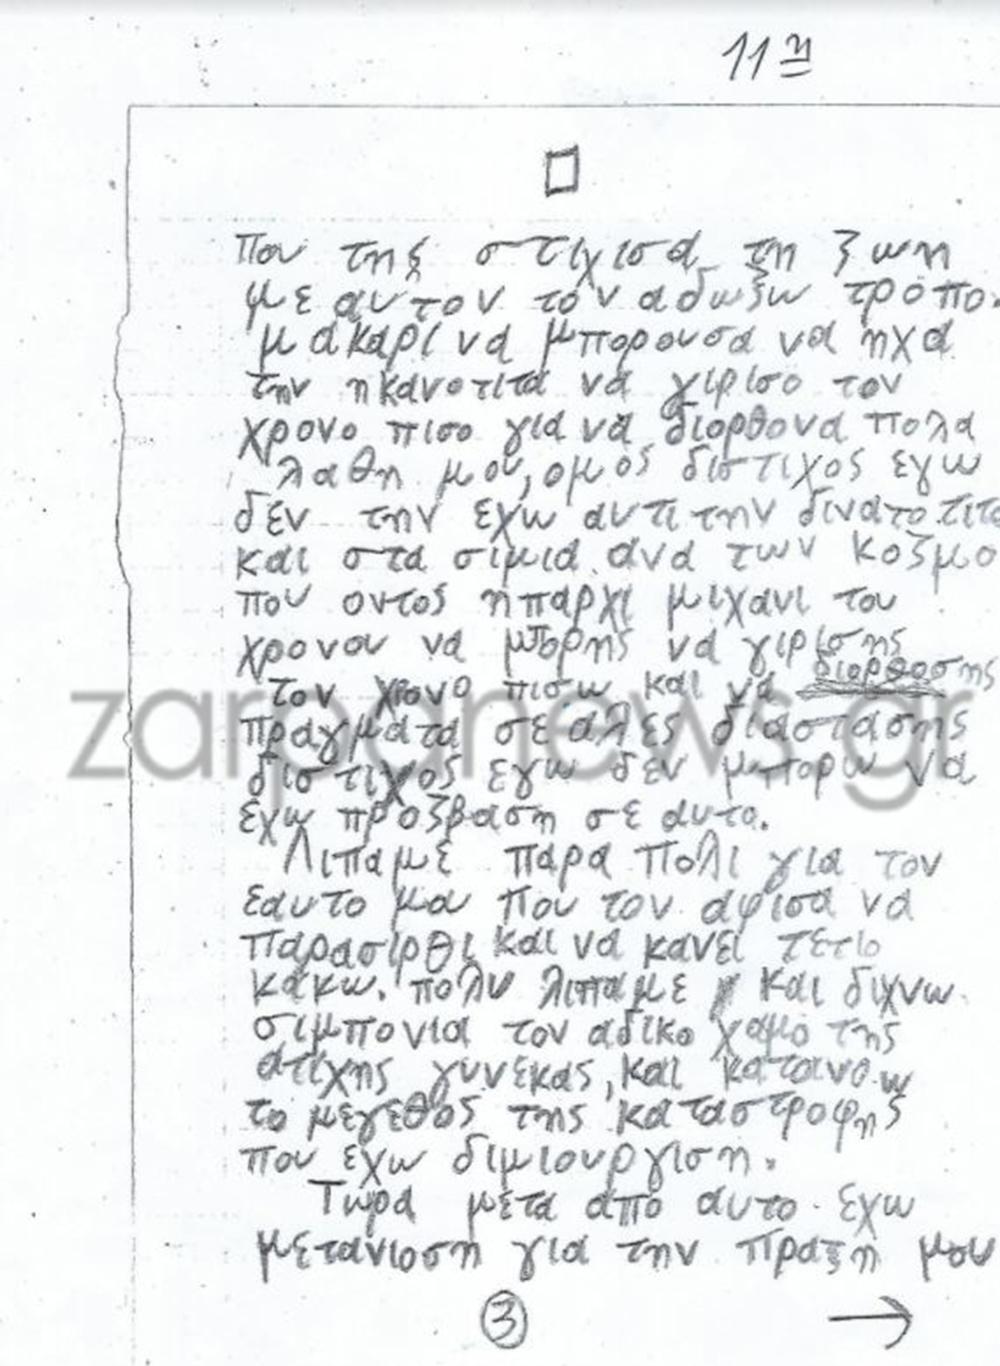 11η
που της στιχισα τη ζωη
με αυτον τον αδωξω τροπο.
μακαρι να μπορουσα να ηχα
την ηκανοτιτα να γιρισο τον
χρονο πισο για να διορθονα πολα
λαθη μου, ομος διστιχος εγω
δεν την εχω αυτι την δινατοτιτα
και στα σιμια ανα των κοζμο
που οντος ηπαρχι μιχανι του
χρονου να μπορης να γιρισης
διορθοσης
τον χρονο πισω και να
πραγματα σε αλες διαστασης
διστιχος εγω δεν μπορω να
εχω προζβαση σε αυτο.
Λιπαμε παρα πολι για τον
εαυτο μου που τον αφισα να
παρασιρθι και να κανει τετιο
κακω. πολυ λιπαμε και διχνω
σιμπονια τον αδικο χαμο της
ατιχης γυνεκας, και κατανοω
το μεγεθος της καταστροφης
που εχω διμιουργιση.
Τωρα μετα απο αυτο εχω
μετανιοση για την πραξη μου
3 →
zarpanews.gr